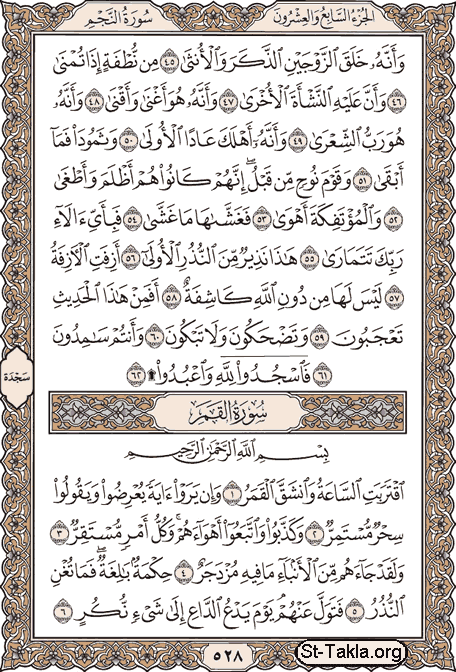 الجزء السابع والعشرون
سورة النجم
وَأَنَّهُۥ خَلَقَ ٱلزَّوْجَيْنِ ٱلذَّكَرَ وَٱلْأُنثَىٰ ٤٥ مِن نُّطْفَةٍ إِذَا تُمْنَىٰ
٤٦ وَأَنَّ عَلَيْهِ ٱلنَّشْأَةَ ٱلْأُخْرَىٰ ٤٧ وَأَنَّهُۥ هُوَ أَغْنَىٰ وَأَقْنَىٰ ٤٨ وَأَنَّهُۥ
هُوَ رَبُّ ٱلشِّعْرَىٰ ٤٩ وَأَنَّهُۥٓ أَهْلَكَ عَادًا ٱلْأُولَىٰ ٥٠ وَثَمُودَا۟ فَمَآ
أَبْقَىٰ ٥١ وَقَوْمَ نُوحٍ مِّن قَبْلُ ۖ إِنَّهُمْ كَانُوا۟ هُمْ أَظْلَمَ وَأَطْغَىٰ
٥٢ وَٱلْمُؤْتَفِكَةَ أَهْوَىٰ ٥٣ فَغَشَّىٰهَا مَا غَشَّىٰ ٥٤ فَبِأَىِّ ءَالَآءِ
رَبِّكَ تَتَمَارَىٰ ٥٥ هَٰذَا نَذِيرٌ مِّنَ ٱلنُّذُرِ ٱلْأُولَىٰٓ ٥٦ أَزِفَتِ ٱلْءَازِفَةُ
٥٧ لَيْسَ لَهَا مِن دُونِ ٱللَّهِ كَاشِفَةٌ ٥٨ أَفَمِنْ هَٰذَا ٱلْحَدِيثِ
تَعْجَبُونَ ٥٩ وَتَضْحَكُونَ وَلَا تَبْكُونَ ٦٠ وَأَنتُمْ سَٰمِدُونَ
٦١ فَٱسْجُدُوا۟ لِلَّهِ وَٱعْبُدُوا۟ ۩ ٦٢
سجدة
سورة القمر
بِسْمِ ٱللَّهِ ٱلرَّحْمَٰنِ ٱلرَّحِيمِ
ٱقْتَرَبَتِ ٱلسَّاعَةُ وَٱنشَقَّ ٱلْقَمَرُ ١ وَإِن يَرَوْا۟ ءَايَةً يُعْرِضُوا۟ وَيَقُولُوا۟
سِحْرٌ مُّسْتَمِرٌّ ٢ وَكَذَّبُوا۟ وَٱتَّبَعُوٓا۟ أَهْوَآءَهُمْ ۚ وَكُلُّ أَمْرٍ مُّسْتَقِرٌّ ٣
وَلَقَدْ جَآءَهُم مِّنَ ٱلْأَنۢبَآءِ مَا فِيهِ مُزْدَجَرٌ ٤ حِكْمَةٌۢ بَٰلِغَةٌ ۖ فَمَا تُغْنِ
ٱلنُّذُرُ ٥ فَتَوَلَّ عَنْهُمْ ۘ يَوْمَ يَدْعُ ٱلدَّاعِ إِلَىٰ شَىْءٍ نُّكُرٍ ٦
٥٢٨
St-Takla.org